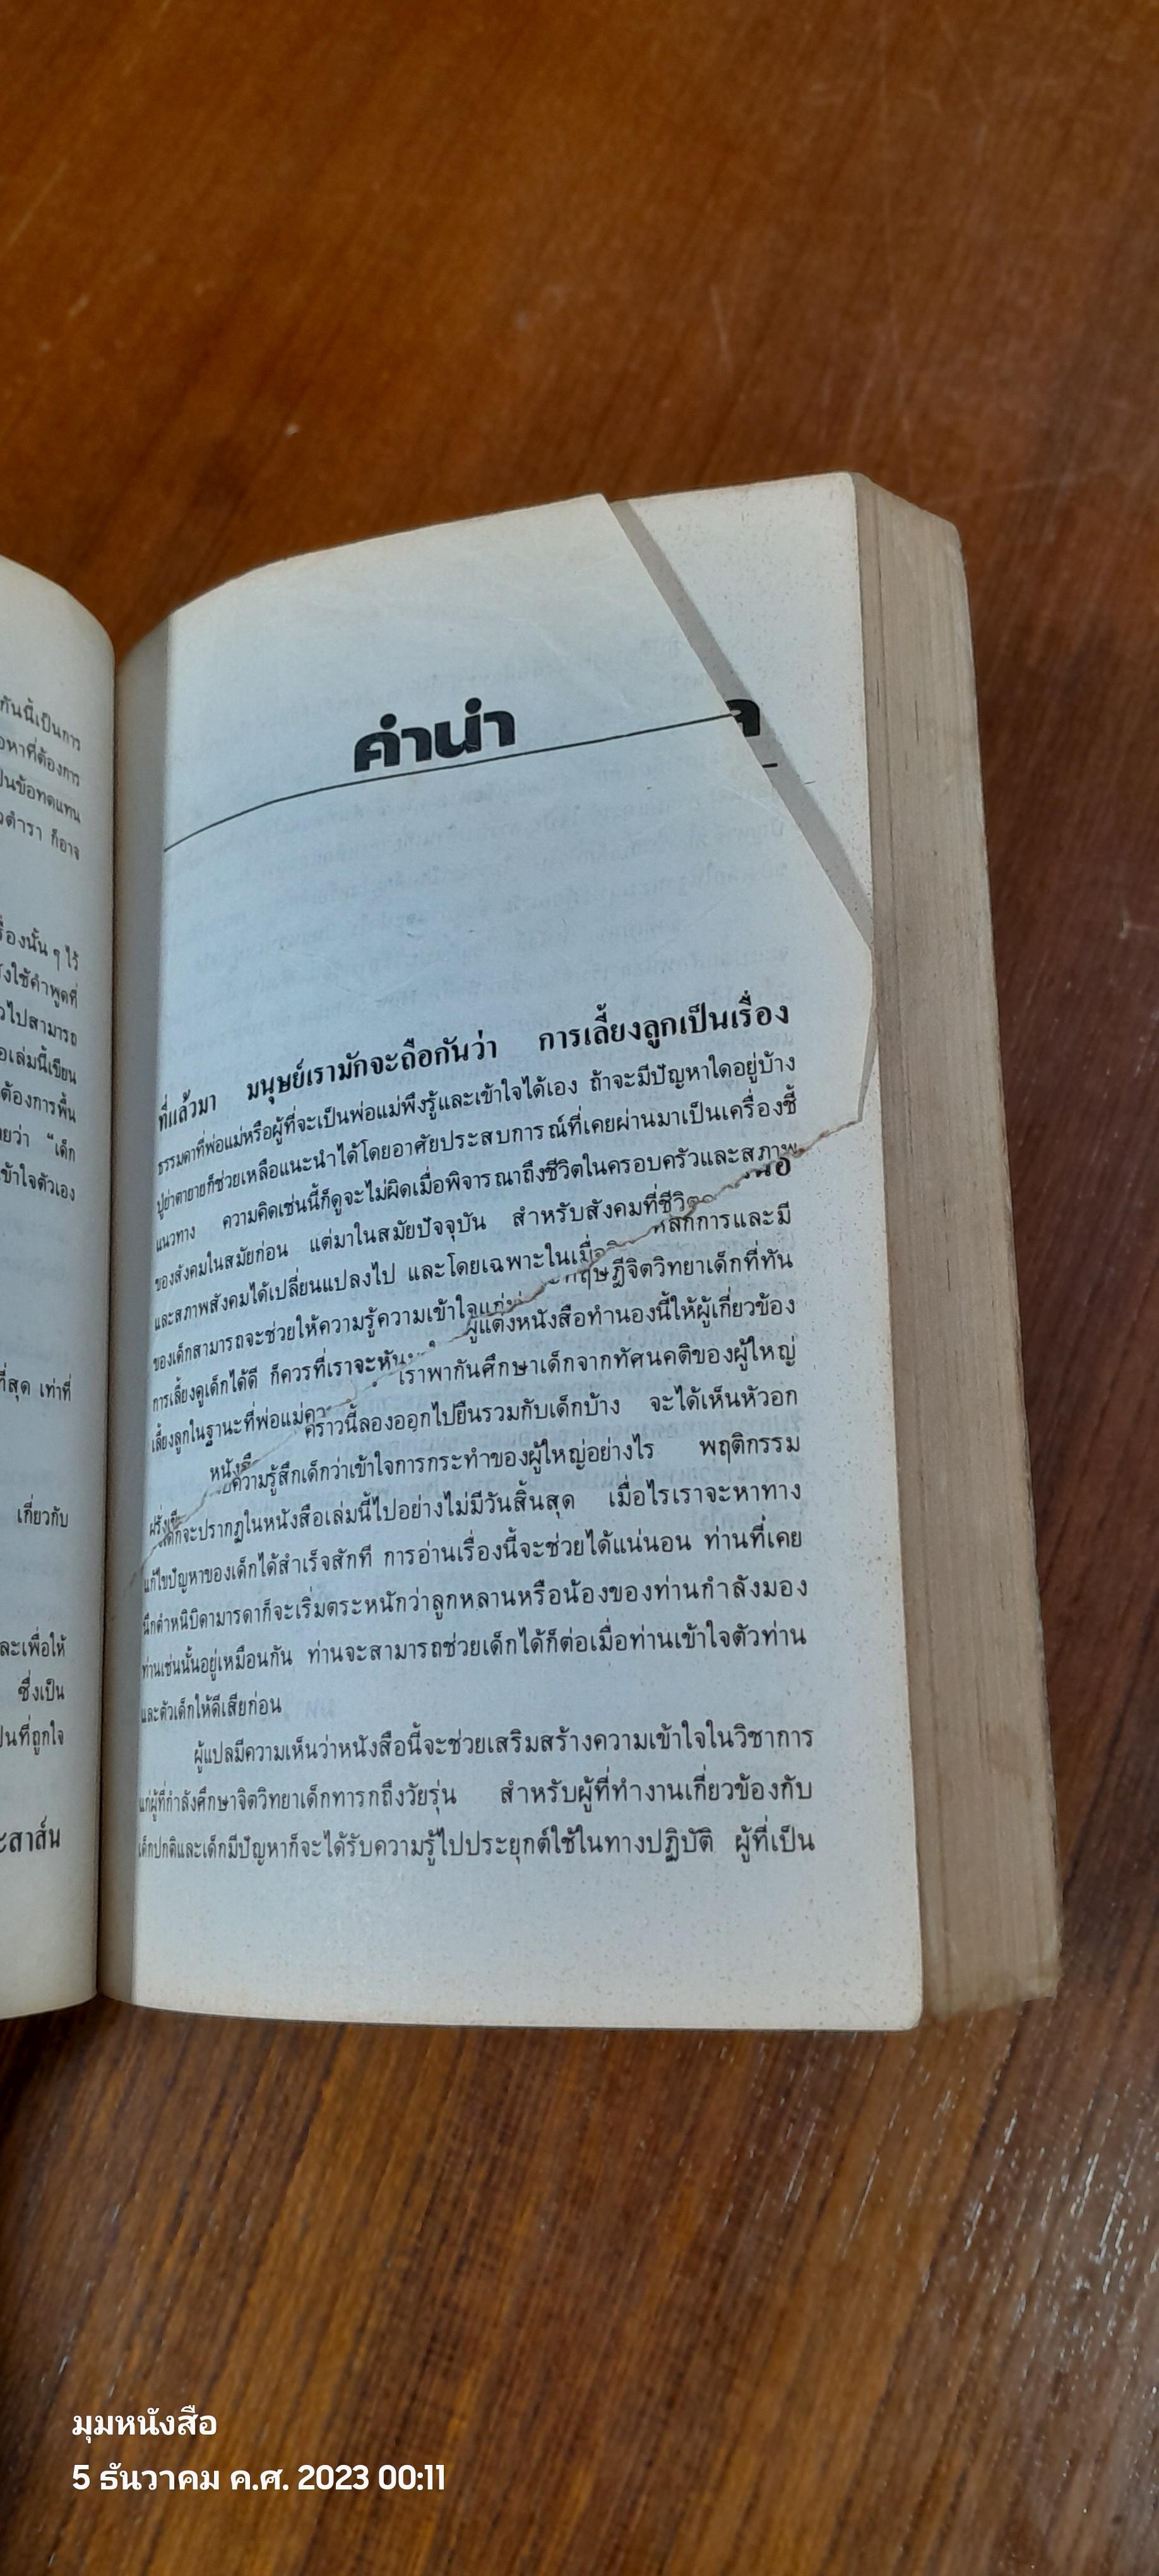 กันนี้เป็นการ
หาที่ต้องการ
ป็นข้อทดแทน
ตำรา ก็อาจ
รื่องนั้น ๆ ไร้
ใช้คำพูดที่
ไปสามารถ
เล่มนี้เขียน
ต้องการพื้น
ยว่า “เด็ก
เข้าใจตัวเอง
ที่สุด เท่าที่
เกี่ยวกับ
ละเพื่อให้
ซึ่งเป็น
ป็นที่ถูกใจ
ะสาส์น
คำนำ
ที่แล้วมา มนุษย์เรามักจะถือกันว่า การเลี้ยงลูกเป็นเรื่อง
ธรรมดาที่พ่อแม่หรือผู้ที่จะเป็นพ่อแม่พึงรู้และเข้าใจได้เอง ถ้าจะมีปัญหาใดอยู่บ้าง
ปู่ย่าตายายก็ช่วยเหลือแนะนำได้โดยอาศัยประสบการณ์ที่เคยผ่านมาเป็นเครื่องชี้
แนวทาง ความคิดเช่นนี้ก็ดูจะไม่ผิดเมื่อพิจารณาถึงชีวิตในครอบครัวและสภาพ
ของสังคมในสมัยก่อน แต่มาในสมัยปัจจุบัน สำหรับสังคมที่ชีวิต
และสภาพสังคมได้เปลี่ยนแปลงไป และโดยเฉพาะในเมื่อ หลักการและมี
ของเด็กสามารถจะช่วยให้ความรู้ความเข้าใจแก่ ทฤษฎีจิตวิทยาเด็กที่ทัน
การเลี้ยงดูเด็กได้ดี ก็ควรที่เราจะหัน ผู้แต่งหนังสือทำนองนี้ให้ผู้เกี่ยวข้อง
เลี้ยงลูกในฐานะที่พ่อแม่ เราพากันศึกษาเด็กจากทัศนคติของผู้ใหญ่
หนังสือ คราวนี้ลองออกไปยืนรวมกับเด็กบ้าง จะได้เห็นหัวอก
ความรู้สึกเด็กว่าเข้าใจการกระทำของผู้ใหญ่อย่างไร พฤติกรรม
เด็กจะปรากฏในหนังสือเล่มนี้ไปอย่างไม่มีวันสิ้นสุด เมื่อไรเราจะหาทาง
แก้ไขปัญหาของเด็กได้สำเร็จสักที การอ่านเรื่องนี้จะช่วยได้แน่นอน ท่านที่เคย
นึกตำหนิบิดามารดาก็จะเริ่มตระหนักว่าลูกหลานหรือน้องของท่านกำลังมอง
ท่านเช่นนั้นอยู่เหมือนกัน ท่านจะสามารถช่วยเด็กได้ก็ต่อเมื่อท่านเข้าใจตัวท่าน
และตัวเด็กให้ดีเสียก่อน
ผู้แปลมีความเห็นว่าหนังสือนี้จะช่วยเสริมสร้างความเข้าใจในวิชาการ
แก่ผู้ที่กำลังศึกษาจิตวิทยาเด็กทารกถึงวัยรุ่น สำหรับผู้ที่ทำงานเกี่ยวข้องกับ
เด็กปกติและเด็กมีปัญหาก็จะได้รับความรู้ไปประยุกต์ใช้ในทางปฏิบัติ ผู้ที่เป็น
มุมหนังสือ
5 ธันวาคม ค.ศ. 2023 00:11